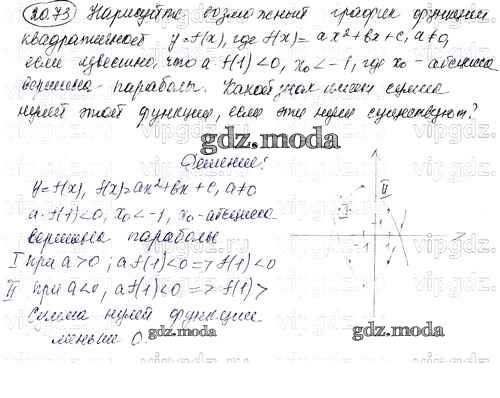 20.73 Нарисуйте возможный график функции
квадратичной y=f(x), где f(x)= ax²+bx+c, a≠0,
если известно, что a f(1)<0, x₀<-1, где x₀ - абсцисса
вершина параболы. Какой знак имеет сумма
нулей этой функции, если эти нули существуют?
gdz.moda
Решение:
y=f(x), f(x)=ax²+bx+c, a≠0
a·f(1)<0, x₀<-1, x₀-абсцисса
вершина параболы
I при a>0; a f(1)<0 => f(1)<0
II при a<0, a f(1)<0 => f(1)>
Сумма нулей функции
меньше 0.
I II
-1 1
gdz.moda
gdz.moda
vipgdz.ru